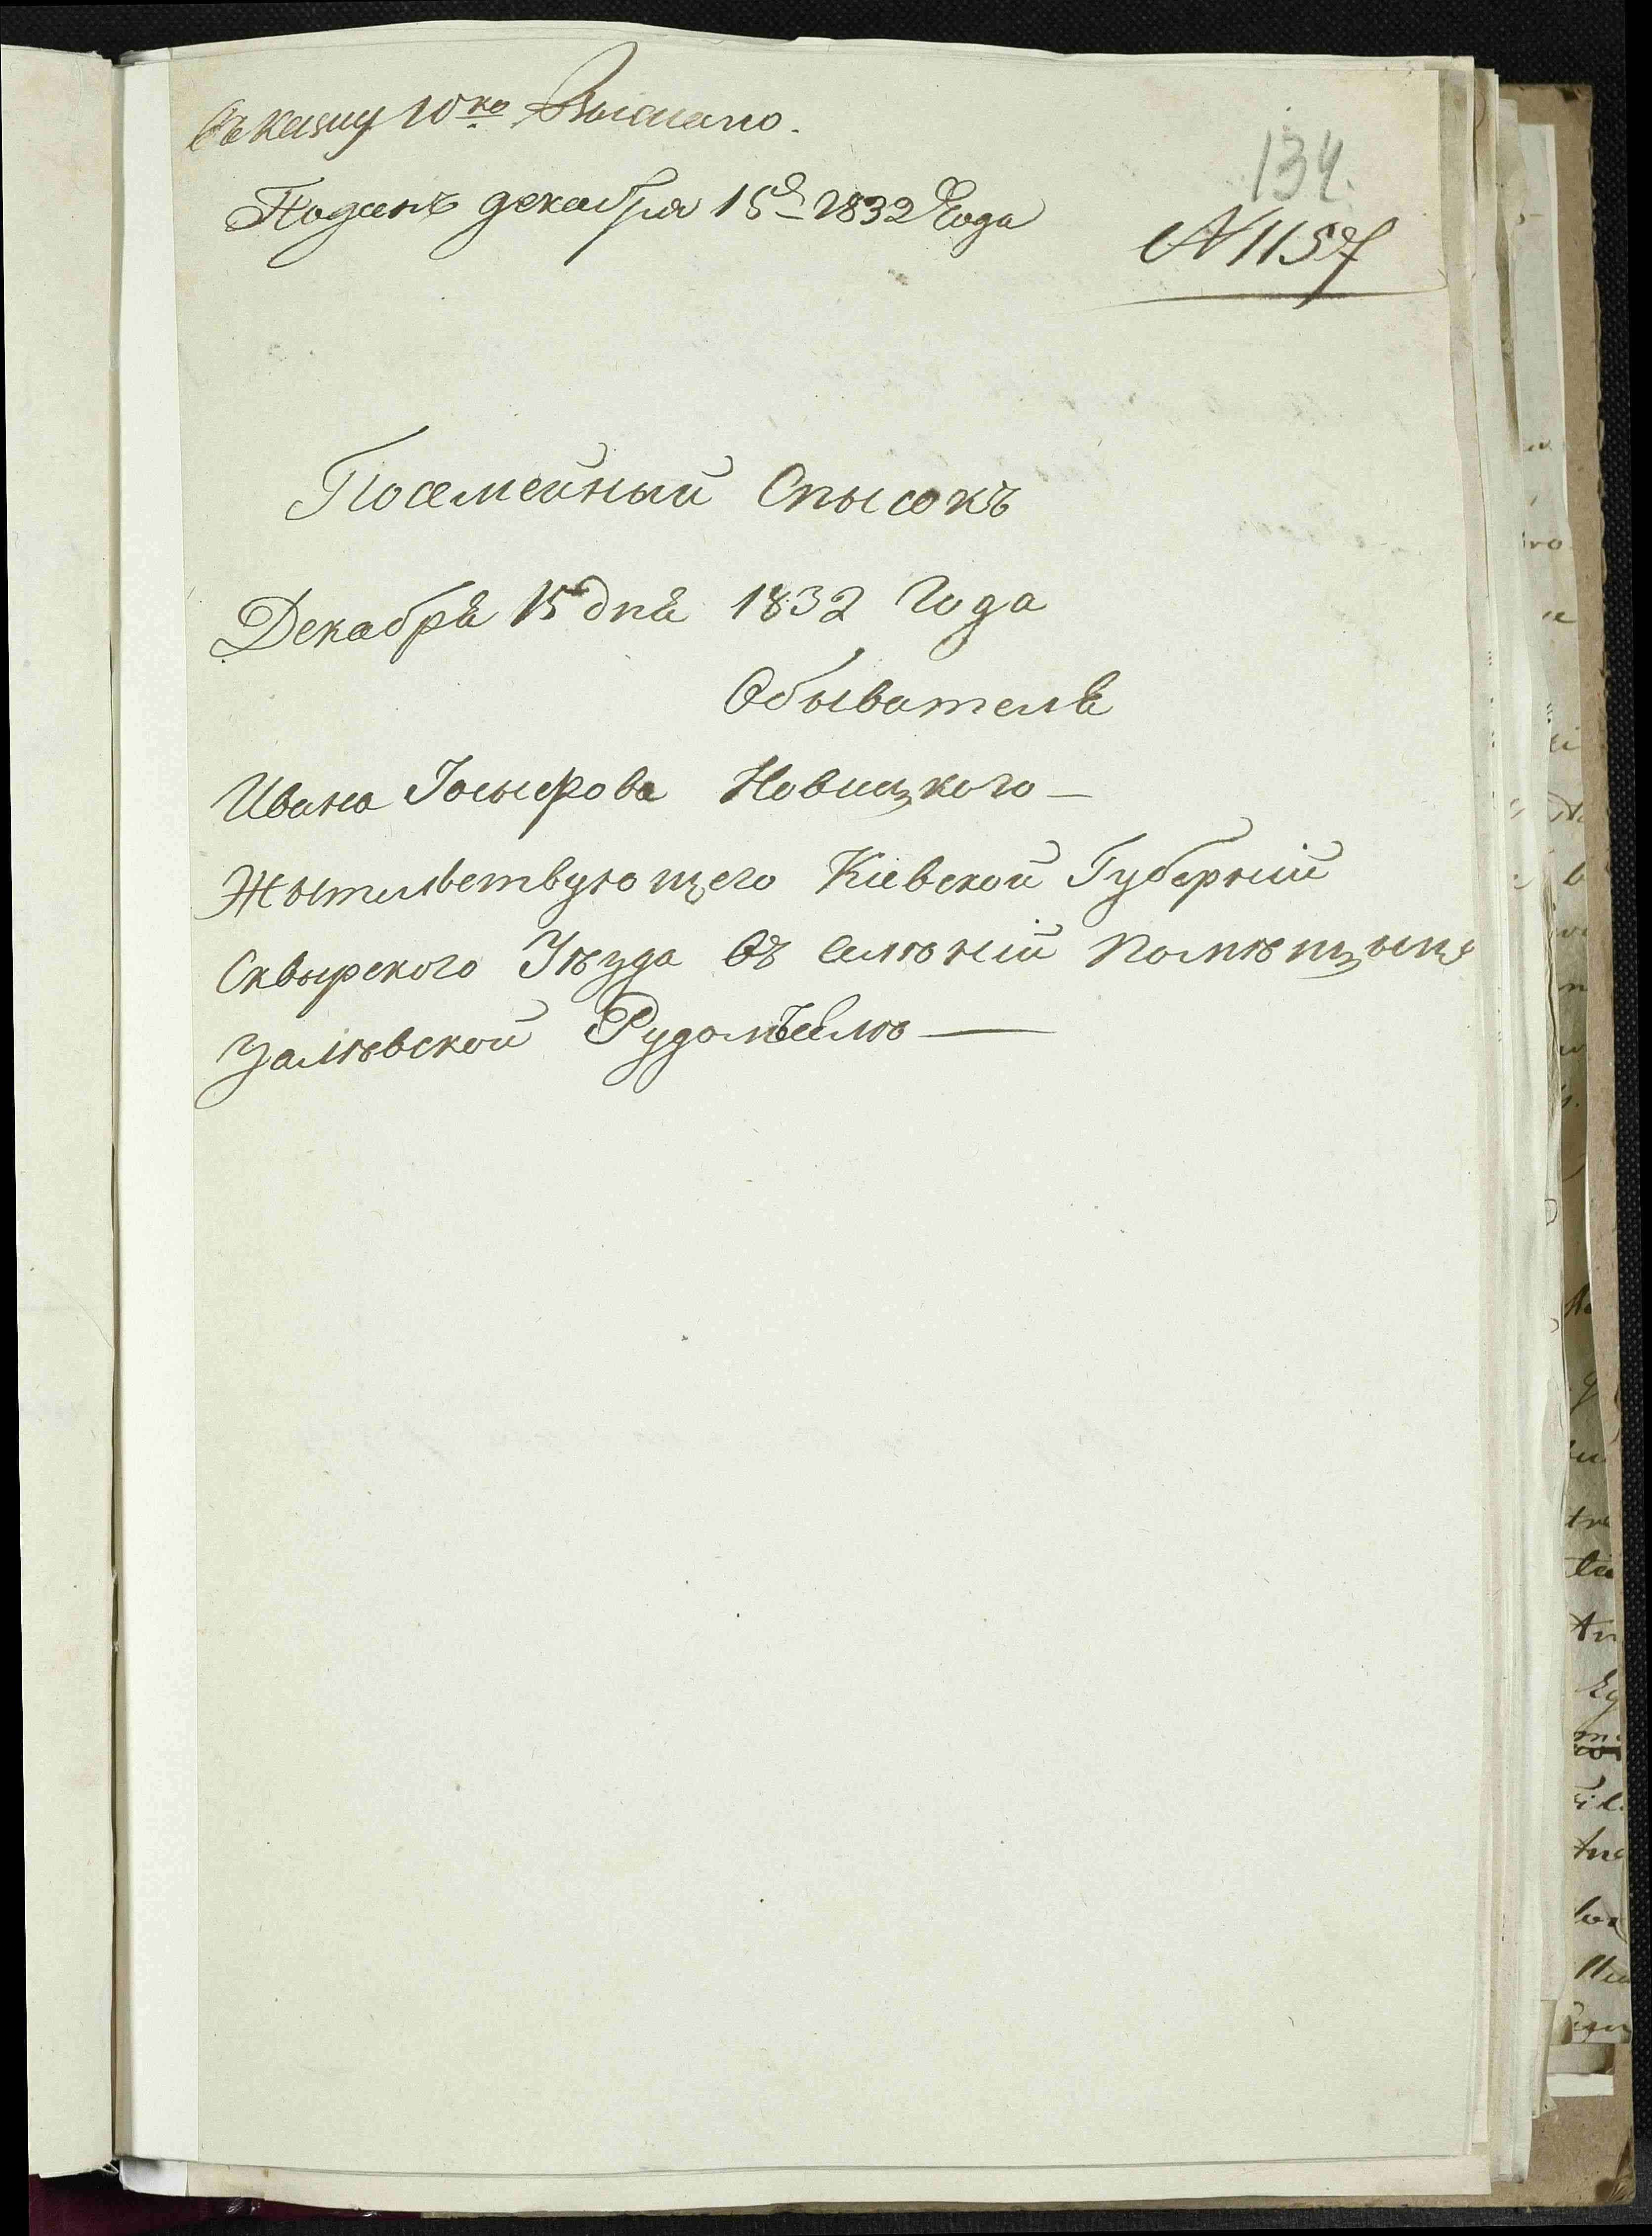 Въ казну 10ко Взыскано.
134.
Поданъ декабря 15д 1832 Года
N 1157
Посемейный Спысокъ
Декабря 15 дня 1832 Года
Обывателя
Ивана Іосыфова Новицкого —
Жытельствующего Кіевской Губерніи
Сквырского Уѣзда въ селѣніи Помѣщыцы
Залѣвской Рудомъселѣ —